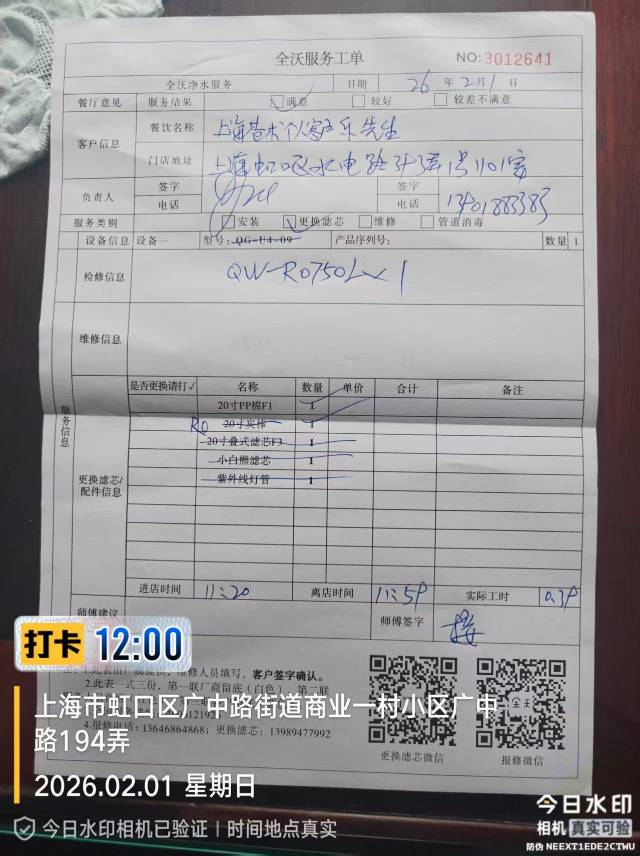 全沃服务工单
NO:3012641
全沃净水服务 日期 26 年 2 月 1 日
餐厅意见 服务结果 满意 较好 较差不满意
客户信息
餐饮名称 上海 乐先生
门店地址 上海虹口区水电路 弄1号1101室
负责人 签字 签字
电话 电话
服务类别 安装 更换滤芯 维修 管道消毒
设备信息 设备一 型号:QG-U4-09 产品序列号: 数量 1
检修信息 QW-R0750L×1
维修信息
服务信息
是否更换请打√ 名称 数量 单价 合计 备注
20寸PP棉F1 1
RO 20寸炭棒 1
20寸叠式滤芯F3 1
小白熊滤芯 1
紫外线灯管 1
更换滤芯/
配件信息
进店时间 11:20 离店时间 11:59 实际工时
师傅建议 师傅签字
维修人员填写,客户签字确认。
2.此表一式三份,第一联厂商留底(白色),第二联
4.报修电话:13646864868;更换滤芯:13989477992
更换滤芯微信 报修微信
打卡 12:00
上海市虹口区广中路街道商业一村小区广中
路194弄
2026.02.01 星期日
今日水印相机已验证 | 时间地点真实
今日水印
相机 真实可验
防伪 NEEXT1EDE2CTWU